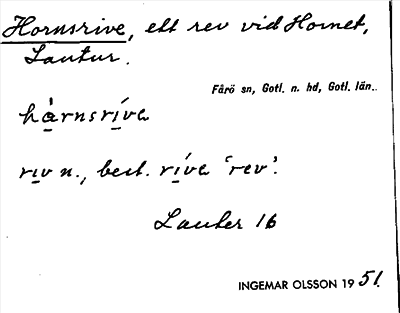 Hornsrive, ett rev vid Hornet,
Lautur.
Fårö sn, Gotl. n. hd, Gotl. län..
hàrnsríva
rıv n., best. ríva 'rev'.
Lauter 16
INGEMAR OLSSON 1951.